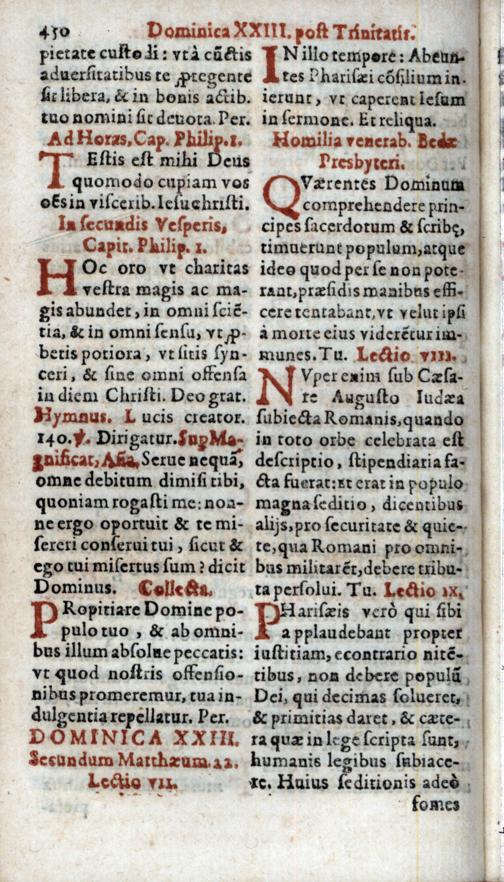 450 Dominica XXIII. post Trinitatis.
pietate custodi: vt à cũctis
aduersitatibus te ꝓtegente
sit libera, & in bonis actib.
tuo nomini sit deuota. Per.
Ad Horas, Cap. Philip. 1.
TEstis est mihi Deus
quomodo cupiam vos
oẽs in viscerib. Iesu christi.
In secundis Vesperis,
Capit. Philip. 1.
HOc oro vt charitas
vestra magis ac ma-
gis abundet, in omni sciẽ-
tia, & in omni sensu, vt ꝓ-
betis potiora, vt sitis syn-
ceri, & sine omni offensa
in diem Christi. Deo grat.
Hymnus. Lucis creator.
140. ℣. Dirigatur. Sup Ma-
gnificat, Aña. Serue nequã,
omne debitum dimisi tibi,
quoniam rogasti me: non-
ne ergo oportuit & te mi-
sereri conserui tui, sicut &
ego tui misertus sum? dicit
Dominus. Collecta.
PRopitiare Domine po-
pulo tuo, & ab omni-
bus illum absolue peccatis:
vt quod nostris offensio-
nibus promeremur, tua in-
dulgentia repellatur. Per.
DOMINICA XXIII.
Secundum Matthæum. 22.
Lectio vii.
IN illo tempore: Abeun-
tes Pharisæi cõsilium in-
ierunt, vt caperent Iesum
in sermone. Et reliqua.
Homilia venerab. Bedæ
Presbyteri.
QVærentes Dominum
comprehendere prin-
cipes sacerdotum & scribę,
timuerunt populum, atque
ideo quod per se non pote-
rant, præsidis manibus effi-
cere tentabant, vt velut ipsi
à morte eius viderẽtur im-
munes. Tu. Lectio viii.
NVper enim sub Cæsa-
re Augusto Iudæa
subiecta Romanis, quando
in toto orbe celebrata est
descriptio, stipendiaria fa-
cta fuerat: Et erat in populo
magna seditio, dicentibus
alijs, pro securitate & quie-
te, qua Romani pro omni-
bus militarẽt, debere tribu-
ta persolui. Tu. Lectio ix.
PHarisæis verò qui sibi
applaudebant propter
iustitiam, e contrario nitẽ-
tibus, non debere populũ
Dei, qui decimas solueret,
& primitias daret, & cæte-
ra quæ in lege scripta sunt,
humanis legibus subiace-
re. Huius seditionis adeò
fomes